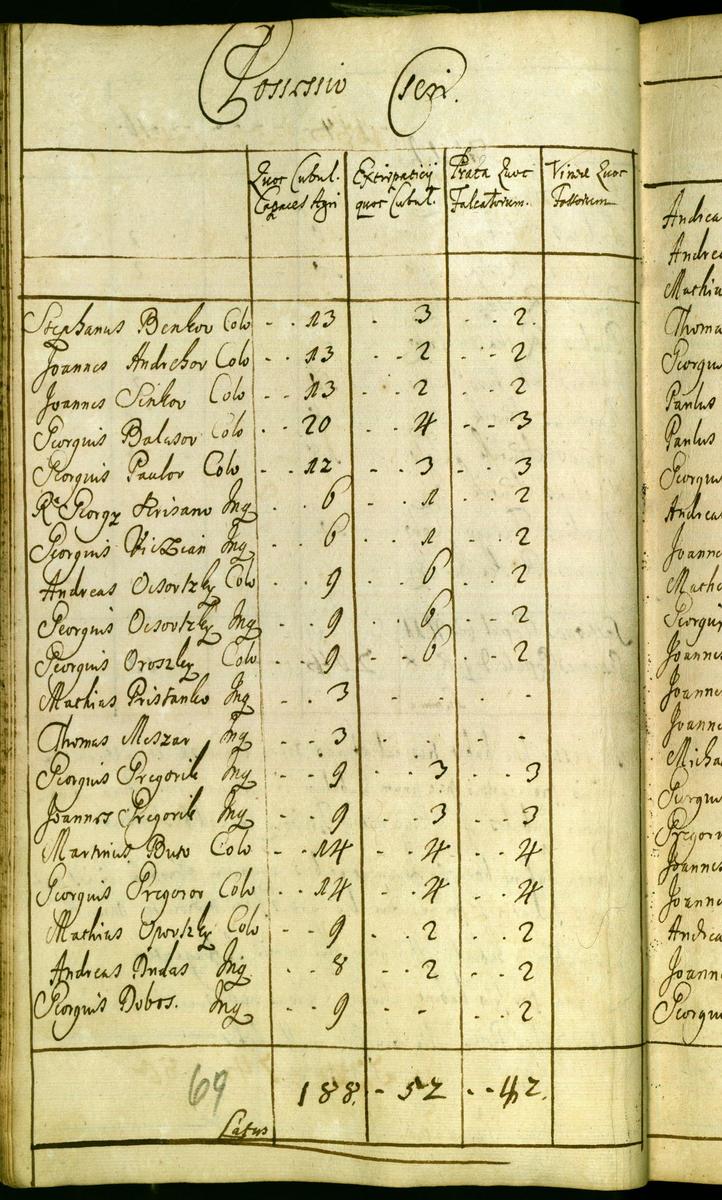 Possessio Cseri.
Quot Cubul. Capaces Agri
Extirpaticÿ quot Cubul.
Prata Quot Falcatorum.
Vineæ Quot Fossorum
Stephanus Benkov Colo - - 13 - 3 - - 2.
Joannes Andrehov Colo - - 13 - - 2 - - 2
Joannes Sinkov Colo - - 13 - - 2 - - 2
Georgius Balasov Colo - - 20 - - 4 - - 3
Georgius Paulov Colo - - 12 - - 3 - - 3
Georgÿ Krisano Inq - - 6 - - 1 - - 2
Georgius Inq - - 6 - - 1 - - 2
Andreas Ocsovszkÿ Colo - - 9 - - 6 - - 2
Georgius Ocsovszkÿ Inq - - 9 - - 6 - - 2
Georgius Oroszkÿ Colo - - 9 - - 6 - - 2
Mathias Pristanko Inq - - 3 - - - -
Thomas Meszar Inq - - 3 - - - -
Georgius Gregorik Inq - - 9 - - 3 - - 3
Joannes Gregorik Inq - - 9 - - 3 - - 3
Martinus Buto Colo - - 14 - - 4 - - 4
Georgius Gregorov Colo - - 14 - - 4 - - 4
Mathias Colo - - 9 - - 2 - - 2
Andreas Dudas Inq - - 8 - - 2 - - 2
Georgius Dobos. Inq - - 9 - - - - 2
69 188. - 52 - - 42.
Latus
Andrea
Andrea
Mathia
Thoma
Georgiu
Paulus
Paulus
Georgiu
Andrea
Joanne
Mathe
Georgiu
Joannes
Joanne
Joanne
Micha
Georgiu
Gregori
Joannes
Joanne
Andrea
Joanne
Georgiu